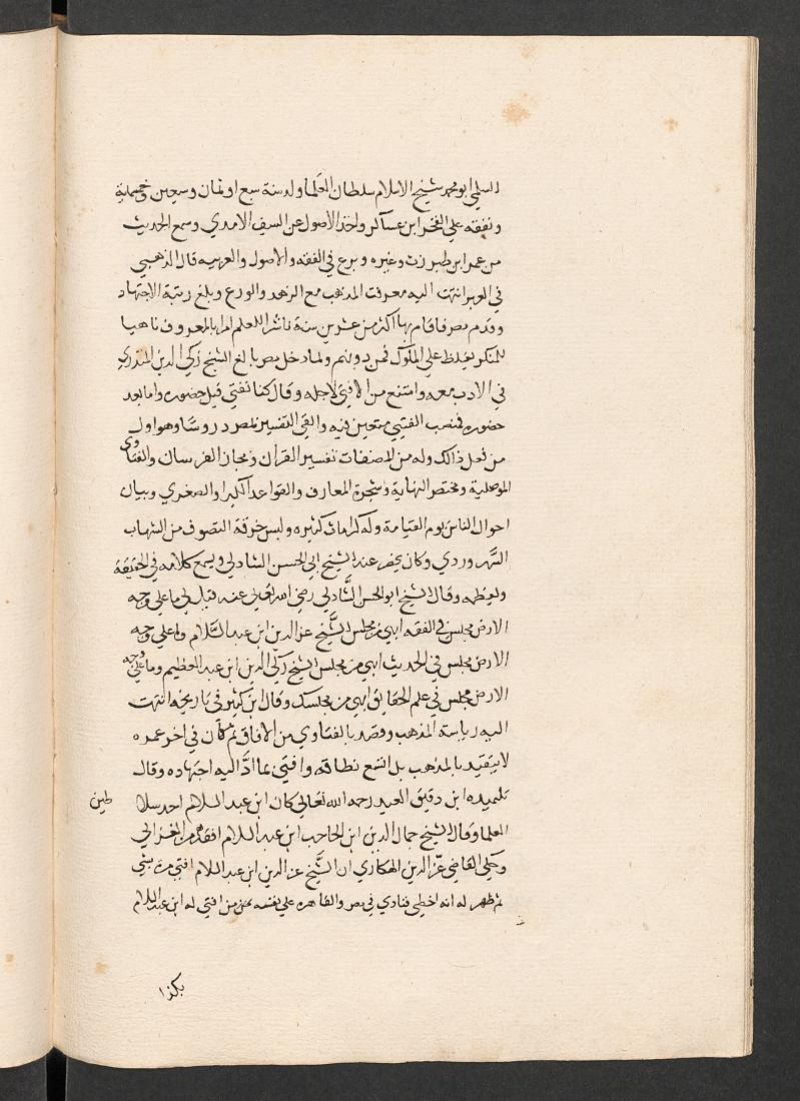 السلمي ابو محمد شيخ الاسلام سلطان العلما ولد سنة سبع او ثمان وسبعين وخمسماية
وتفقه علي الفخر ابن عساكر واخذ الاصول عن السيف الامدي وسمع الحديث
من عمر ابن طبرزت وغيره وبرع في الفقه والاصول والعربيه قال الذهبي
في العبر انتهت اليه معرفت المذهب مع الزهد والورع وبلغ رتبة الاجتهاد
وقدم مصر فاقام بها اكثر من عشرين سنة ناشرا للعلم امرا بالمعروف ناهيا
للمنكر يغلظ علي الملوك فمن دونهم ولما دخل مصر بالغ الشيخ زكي الدين المنذري
في الادب معه وامتنع من الافتي لاجله وقال كنا نفتي قبل حضوره واما بعد
حضوره فمنصب الفتيي متعين فيه والقي التفسير بمصر دروسًا وهو اول
من فعل ذالك وله من المصنفات تفسير القران ومجاز الفرسان والفتاوي
الموصلية ومختصر النهاية وشجرة المعارف والقواعد الكبرا والصغري وبيان
احوال الناس يوم القيامة وله كرامات كثيره ولبس خرقة التصوف من الشهاب
السَّهروردي وكان يحضر عند الشيخ ابي الحسن الشادلي ويسمع كلامه في الحقيقة
ويعظمه وقال الشيخ ابو الحسن الشَّادلي رضي الله تعالي عنه قيل لي ما علي وجه
الارض مجلس في الفقه ابهي من مجلس الشَّيخ عز الدين ابن عبد السَّلام وما علي وجه
الارض مجلس في الحديث ابهي من مجلس الشيخ زكي الدين ابن عبد العظيم وما علي وجه
الارض مجلس في علم الحقايق ابهي من مجلسك وقال ابن كثير في تاريخه انتهت
اليه رياسة المذهب وقصد بالفتاوي من الافاق ثم كان في اخر عمره
لا يتقيد بالمذهب بل اتسع نطاقه وافتي بما ادَّا اليه اجتهاده وقال
تلميده ابن دقيق العيد رحمه الله تعالي كان ابن عبد السلام احد سلا طين
العلما وقال الشيخ جمال الدين ابن الحاجب ابن عبد السلام افقه من الغزالي
وحكي القاضي عزّ الدين الهكاري ان الشَّيخ عز الدين ابن عبد السلام افتي مرة بشي
ثم ظهر له انه اخطي فنادي في مصر والقاهره علي نفسه من افتي له ابن عبد السلام
بكذا